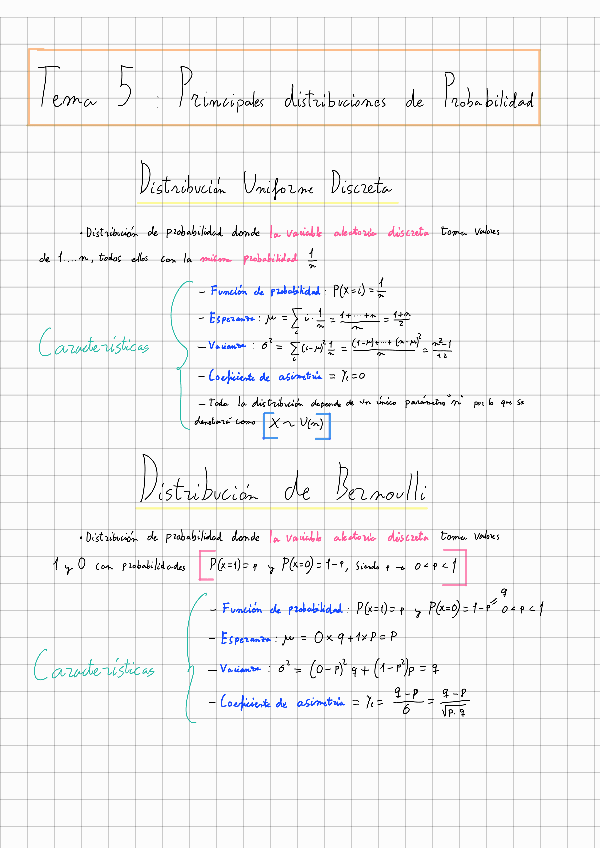 Tema 5 : Principales distribuciones de Probabilidad
Distribución Uniforme Discreta
• Distribución de probabilidad donde la variable aleatoria discreta toma valores
de 1....n, todos ellos con la misma probabilidad 1/n
Características
- Función de probabilidad: P(X=i) = 1/n
- Esperanza: μ = ∑_i i · 1/n = (1+...+n)/n = (1+n)/2
- Varianza: σ² = ∑_i (i-μ)² 1/n = ((1-μ)²+...+(n-μ)²)/n = (n²-1)/12
- Coeficiente de asimetría = γ₁ = 0
- Toda la distribución depende de un único parámetro "n" por lo que se
denotará como [X ~ U(n)]
Distribución de Bernoulli
• Distribución de probabilidad donde la variable aleatoria discreta toma valores
1 y 0 con probabilidades [P(X=1) = p y P(X=0) = 1-p, Siendo p → 0 < p < 1]
Características
- Función de probabilidad: P(X=1) = p y P(X=0) = 1-p = q 0 < p < 1
- Esperanza: μ = 0 × q + 1 × p = P
- Varianza: σ² = (0-p)² q + (1-p²)p = q
- Coeficiente de asimetría = γ₁ = (q-p)/σ = (q-p)/√p·q